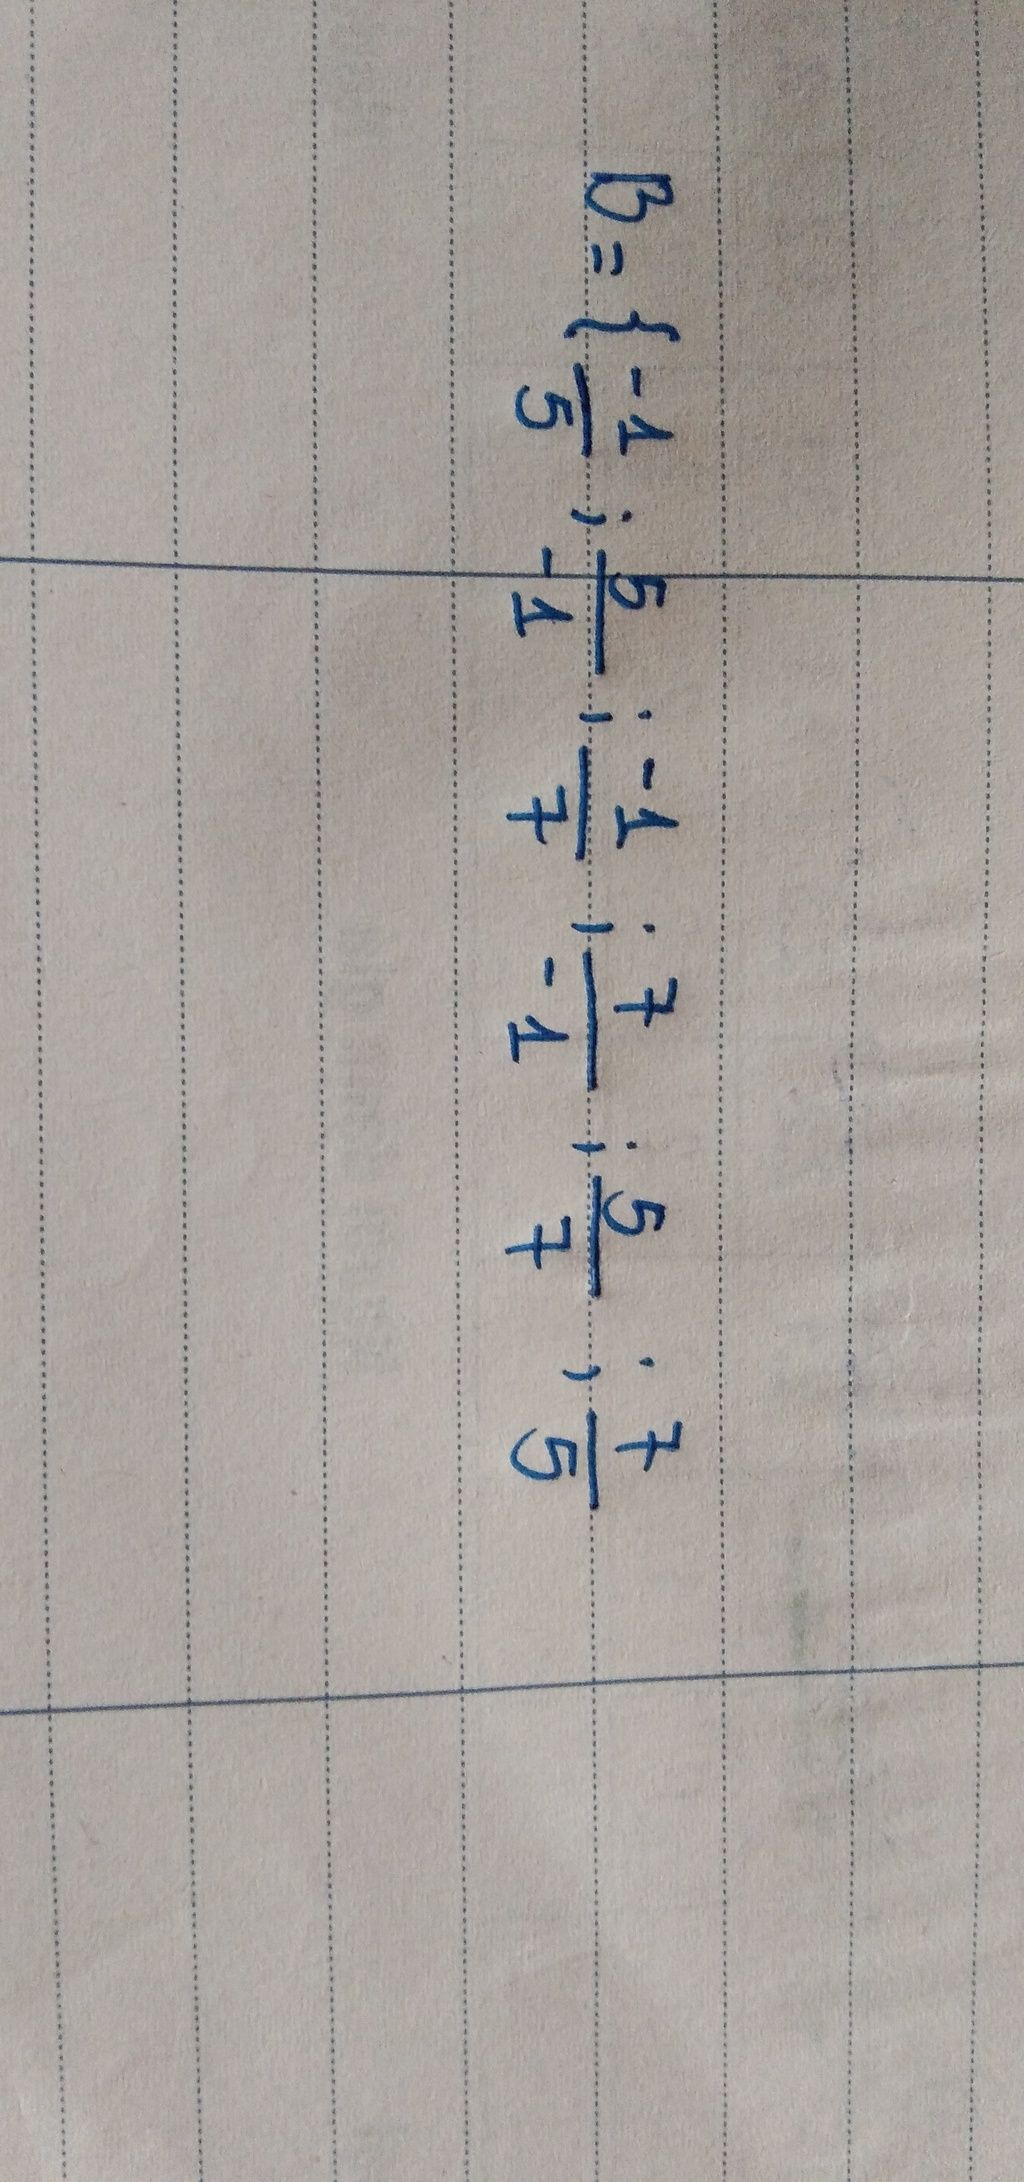 B = { -1/5 ; 5/-1 ; -1/7 ; 7/-1 ; 5/7 ; 7/5